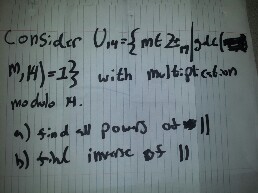 Consider U14 = { m ∈ Z | gcd(
m, 14) = 1 } with multiplication
modulo 14.
a) find all powers of 11
b) find inverse of 11